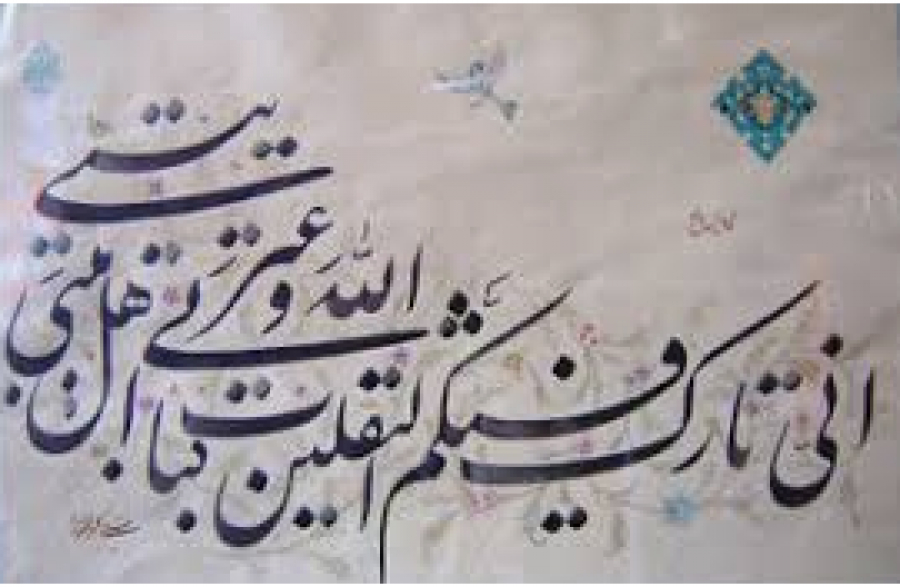 انی تارک فیکم الثقلین کتاب الله و عترتی اهل بیتی